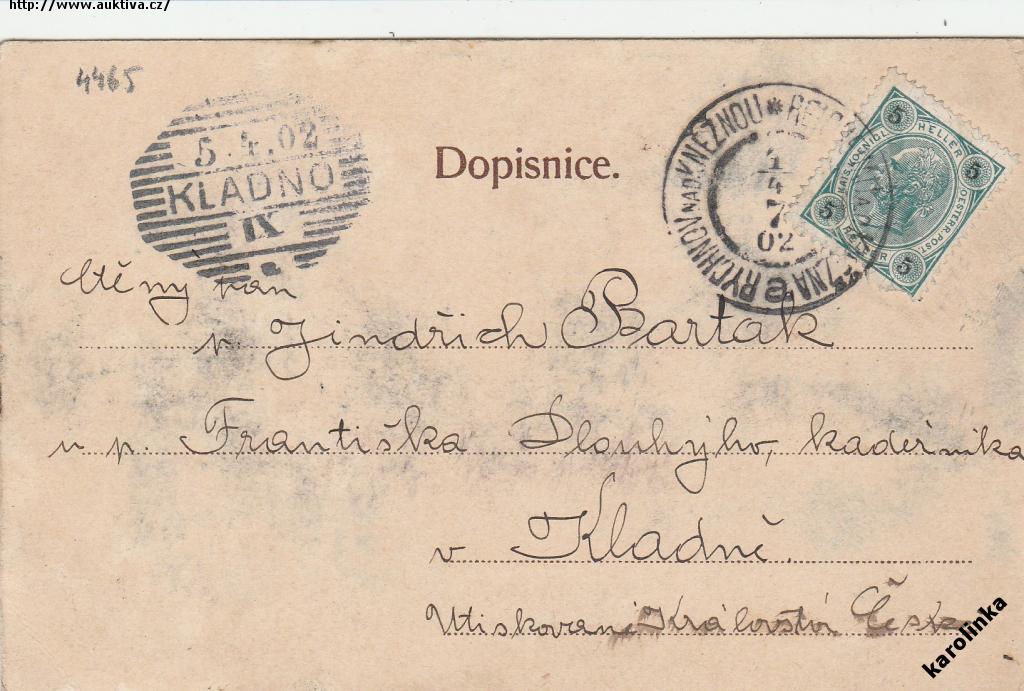 http://www.auktiva.cz/
4465
5.4.02
KLADNO
IX
Dopisnice.
RYCHNOV NAD KNĚŽNOU *
4
7
02
5 HELLER 5
KAIS. KOENIGL. OESTERR. POST.
5 HELLER 5
Ctěný pan
p. Jindřich Bartak
u p. Františka Dlouhýho, kadeřníka
v Kladně.
Utiskované Království České
karolinka